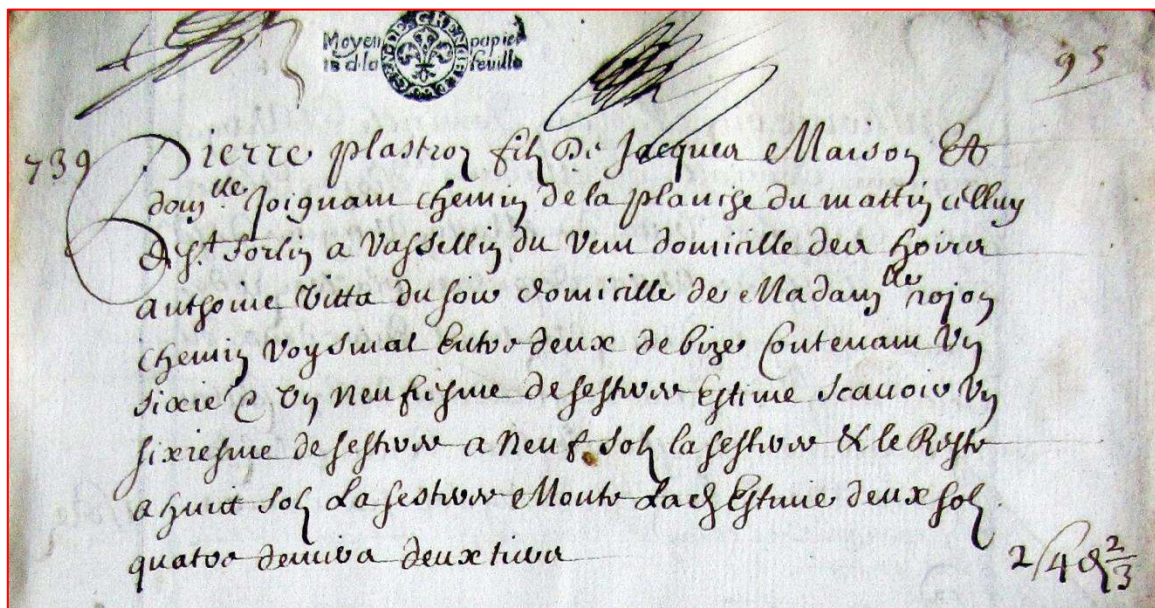 Moyen papier
18 d. la feuille
GEN. DE GRENOBLE
95
739 Pierre plastron filz De Jacques Maison Et
dom^lle Joignant chemin de la planche du mattin celluy
de S^t. sorlin a Vassellin du Vent domicille des hoirs
anthoine Vitta du soir domicille de Madam^lle rojon
chemin Voysinal Entre deux de bize Contenant Un
sixie & Un Neufiesme de sestree Estime scavoir Un
sixiesme de sestree a Neuf solz la sestree & le Reste
a huict solz La sestree Monte Lad Estime deux solz
quatre deniers deux tiers
2 s 4 d 2/3